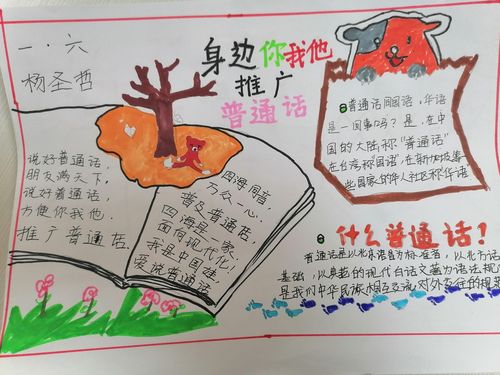 一·六
杨圣哲
身边你我他
推广
普通话
普通话同国语,华语
是一回事吗?是,在中
国的大陆称"普通话"
在台湾称国语,在新加坡等
些国家的华人社区称华语
说好普通话,
朋友满天下,
说好普通话,
方便你我他,
推广普通话.
四海同音,
万众一心,
普及普通话,
四海是一家,
面向现代化,
我是中国娃,
爱说普通话
什么普通话!
普通话是以北京语音为标准音,以北方话
基础,以典范的现代白话文著为语法规
是我们中华民族相互交流,对外交往的规范